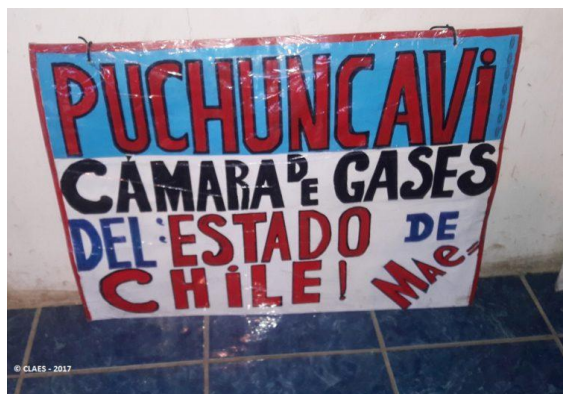 PUCHUNCAVi
CÁMARA DE GASES
DEL: ESTADO DE
CHiLE! MAe=
© CLAES - 2017